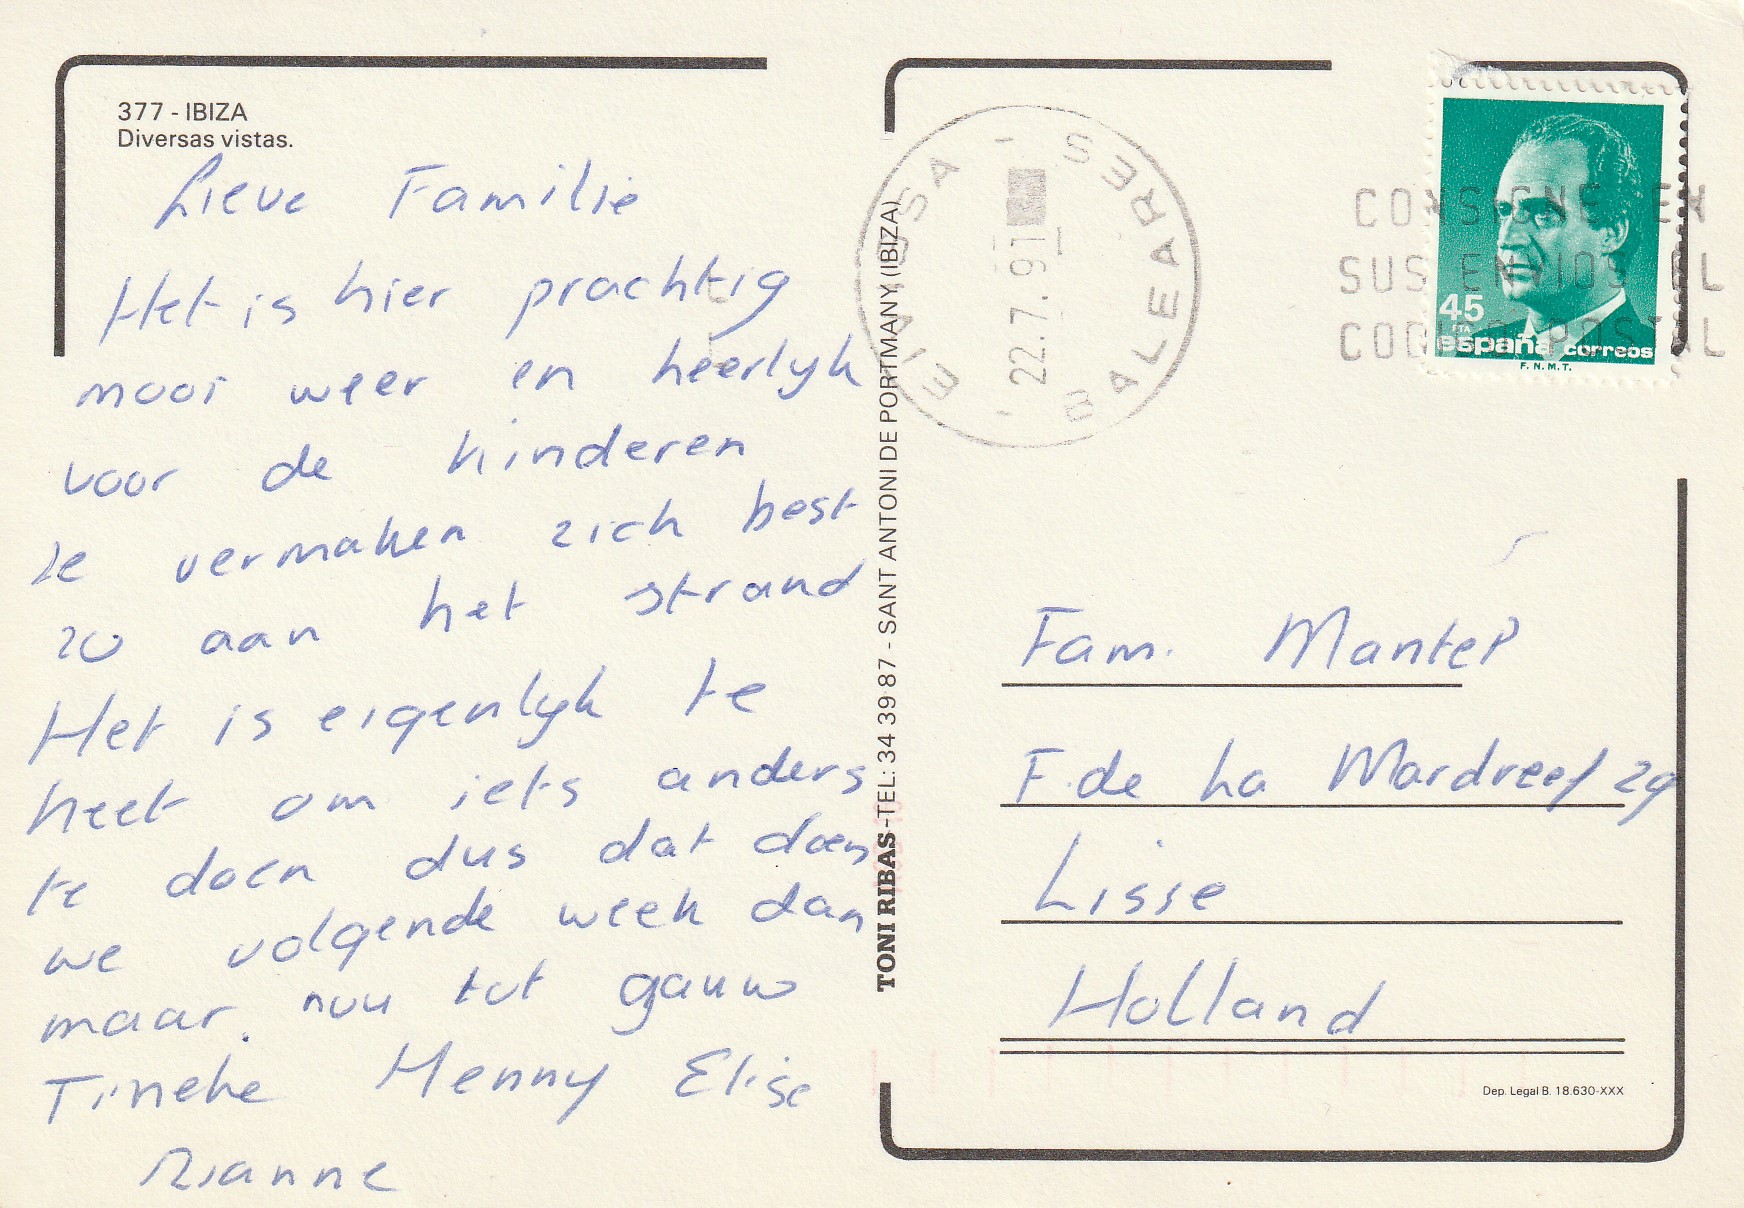 377 - IBIZA
Diversas vistas.
Lieve Familie
Het is hier prachtig
mooi weer en heerlyk
voor de kinderen
ze vermaken zich best
zo aan het strand
Het is eigenlyk te
heet om iets anders
te doen dus dat doen
we volgende week dan
maar. nou tot gauw
Tineke Henny Elise
Rianne
TONI RIBAS - TEL: 34 39 87 - SANT ANTONI DE PORTMANY (IBIZA)
EIVISSA - BALEARES -
22.7.91
CONSIGNE EN
SUS ENVIOS EL
CODIGO POSTAL
45
PTA
españa correos
F.N.M.T.
Fam. Mantel
F. de La Mardreef 29
Lisse
Holland
Dep. Legal B. 18.630-XXX